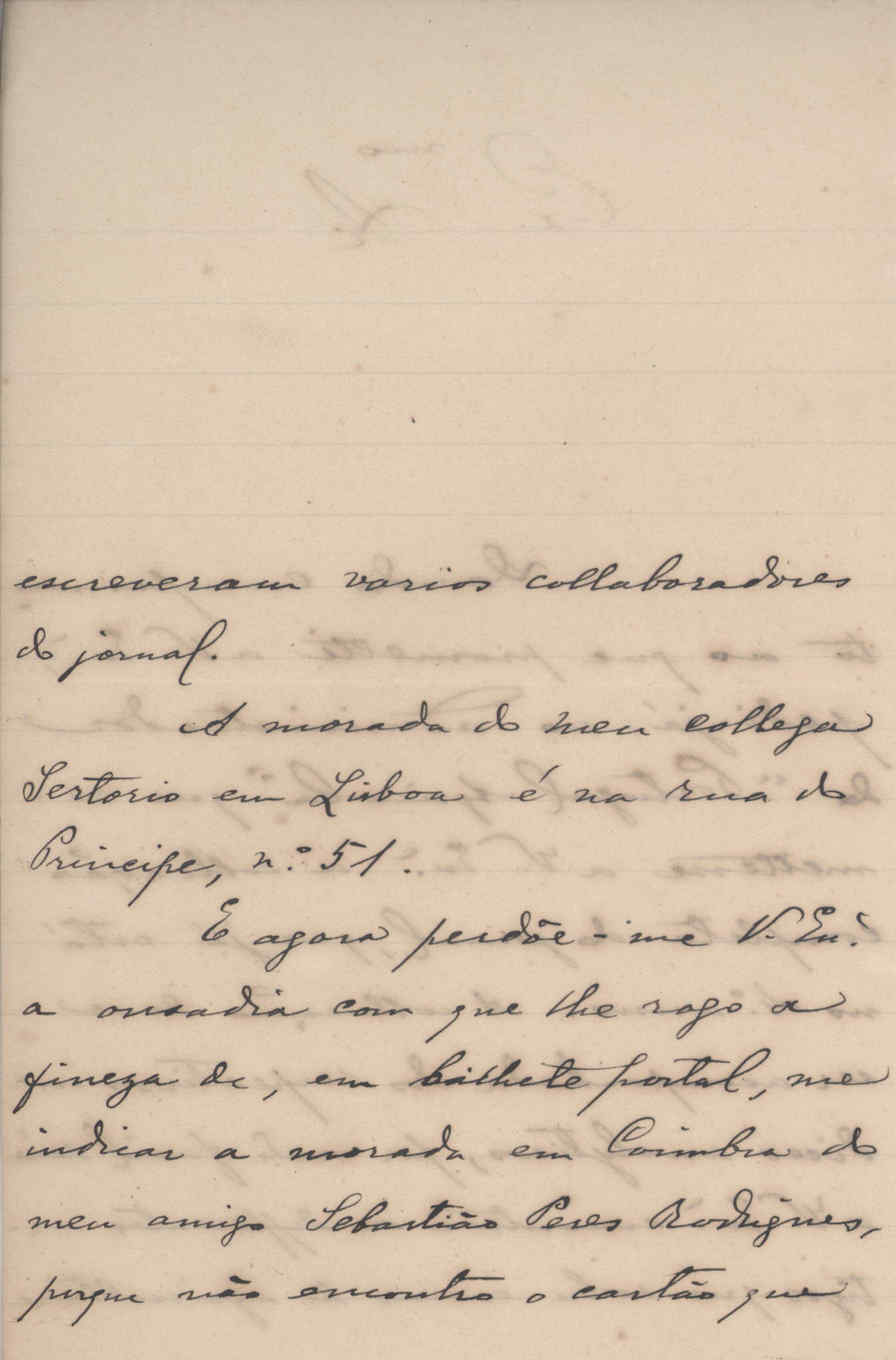 escreveram varios collaboradores
do jornal.
A morada do meu collega
Sertorio em Lisboa é na rua do
Principe, n.º 51.
E agora perdõe-me V. Ex.ª
a ousadia com que lhe rogo a
fineza de, em bilhete postal, me
indicar a morada em Coimbra do
meu amigo Sebastião Peres Rodrigues,
porque não encontro o cartão que